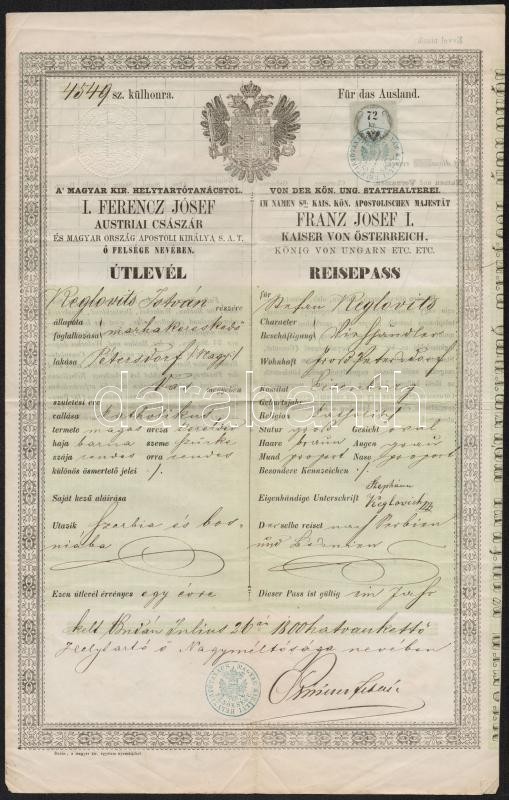 4549 sz. külhonra.
Für das Ausland.
72
kr.
A' MAGYAR KIR. HELYTARTÓTANÁCSTÓL.
I. FERENCZ JÓSEF
AUSTRIAI CSÁSZÁR
ÉS MAGYAR ORSZÁG APOSTOLI KIRÁLYA S. A. T.
Ő FELSÉGE NEVÉBEN.
ÚTLEVÉL
Keglovits István részére
állapota
foglalkozása marhakereskedő
lakása Petersdorf
Vas megyében
születési év
vallása katholikus
termete magas arcza
haja barna szeme szürke
szája rendes orra rendes
különös ösmertető jelei ./.
Saját kezű aláírása
Utazik Szerbia és bos-
niába
Ezen útlevél érvényes egy évre
VON DER KÖN. UNG. STATTHALTEREI.
IM NAMEN Sr. KAIS. KÖN. APOSTOLISCHEN MAJESTÄT
FRANZ JOSEF I.
KAISER VON ÖSTERREICH,
KÖNIG VON UNGARN ETC. ETC.
REISEPASS
für Stefan Keglovits
Character
Beschäftigung Viehhändler
Wohnhaft Petersdorf
Komitat Eisenburg
Geburtsjahr
Religion kathol.
Statur groß Gesicht oval
Haare braun Augen grau
Mund proport Nase proport
Besondere Kennzeichen ./.
Stephann
Eigenhändige Unterschrift Keglovich
Derselbe reiset nach Serbien
und Bosnien
Dieser Pass ist gültig ein Jahr
kelt Budán Julius 26án 1800hatvankettő
Helytartó ő Nagyméltósága nevében
Budán, a magyar kir. egyetem nyomdájából
darabanth